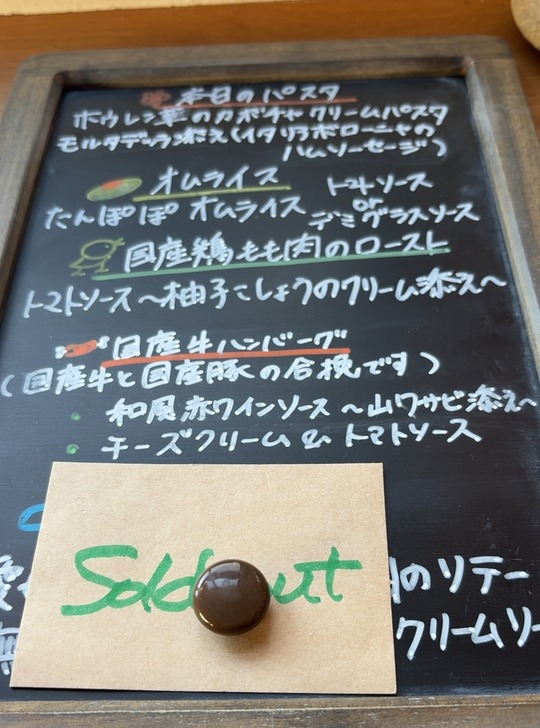 本日のパスタ
ホウレン草のカボチャクリームパスタ
モルタデッラ添え(イタリアボローニャの
ハムソーセージ)
オムライス
たんぽぽ オムライス トマトソース
or
デミグラスソース
国産鶏もも肉のロースト
トマトソース〜柚子こしょうのクリーム添え〜
国産牛ハンバーグ
(国産牛と国産豚の合挽です)
・和風赤ワインソース 〜山ワサビ添え〜
・チーズクリーム & トマトソース
Sold out
のソテー
クリームソー